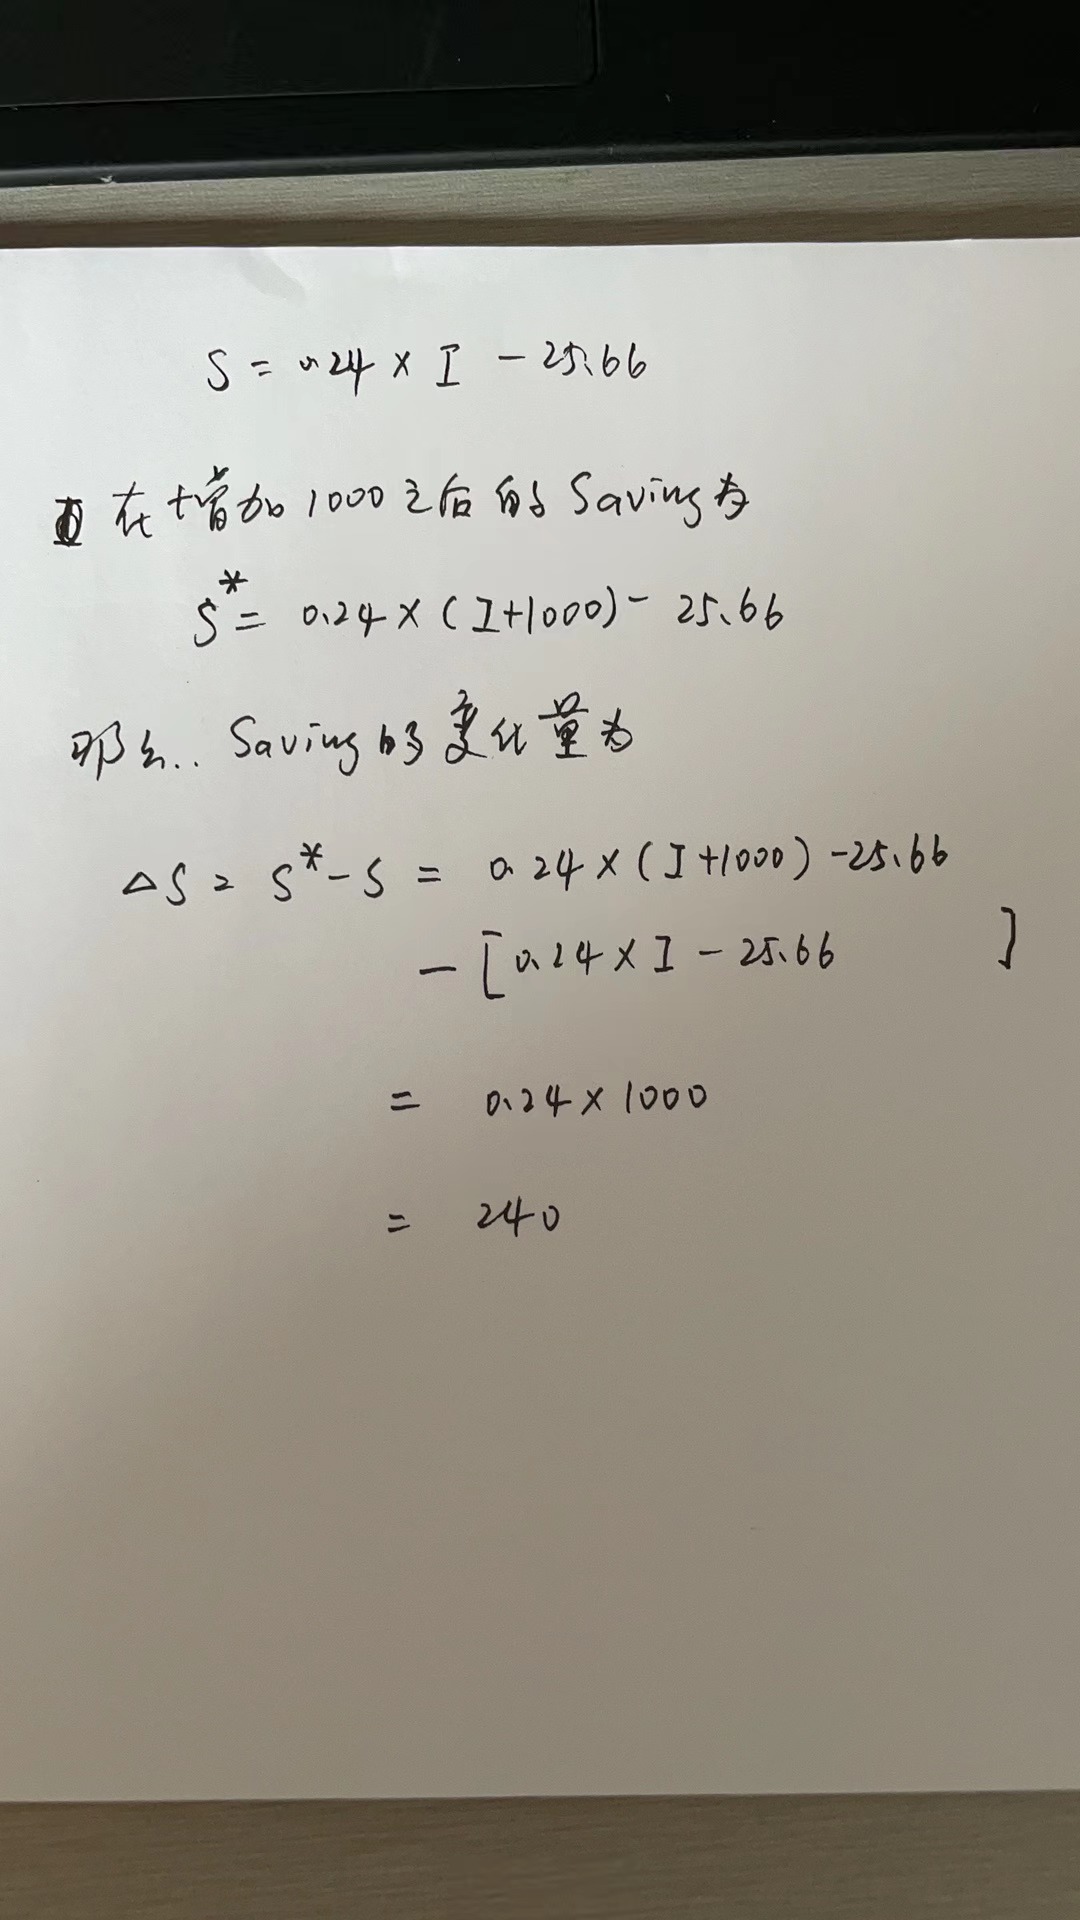 S = 0.24 × I - 25.66
在增加1000之后的Saving为
S* = 0.24 × (I+1000) - 25.66
那么.. Saving的变化量为
ΔS = S* - S = 0.24 × (I+1000) - 25.66
- [0.24 × I - 25.66 ]
= 0.24 × 1000
= 240